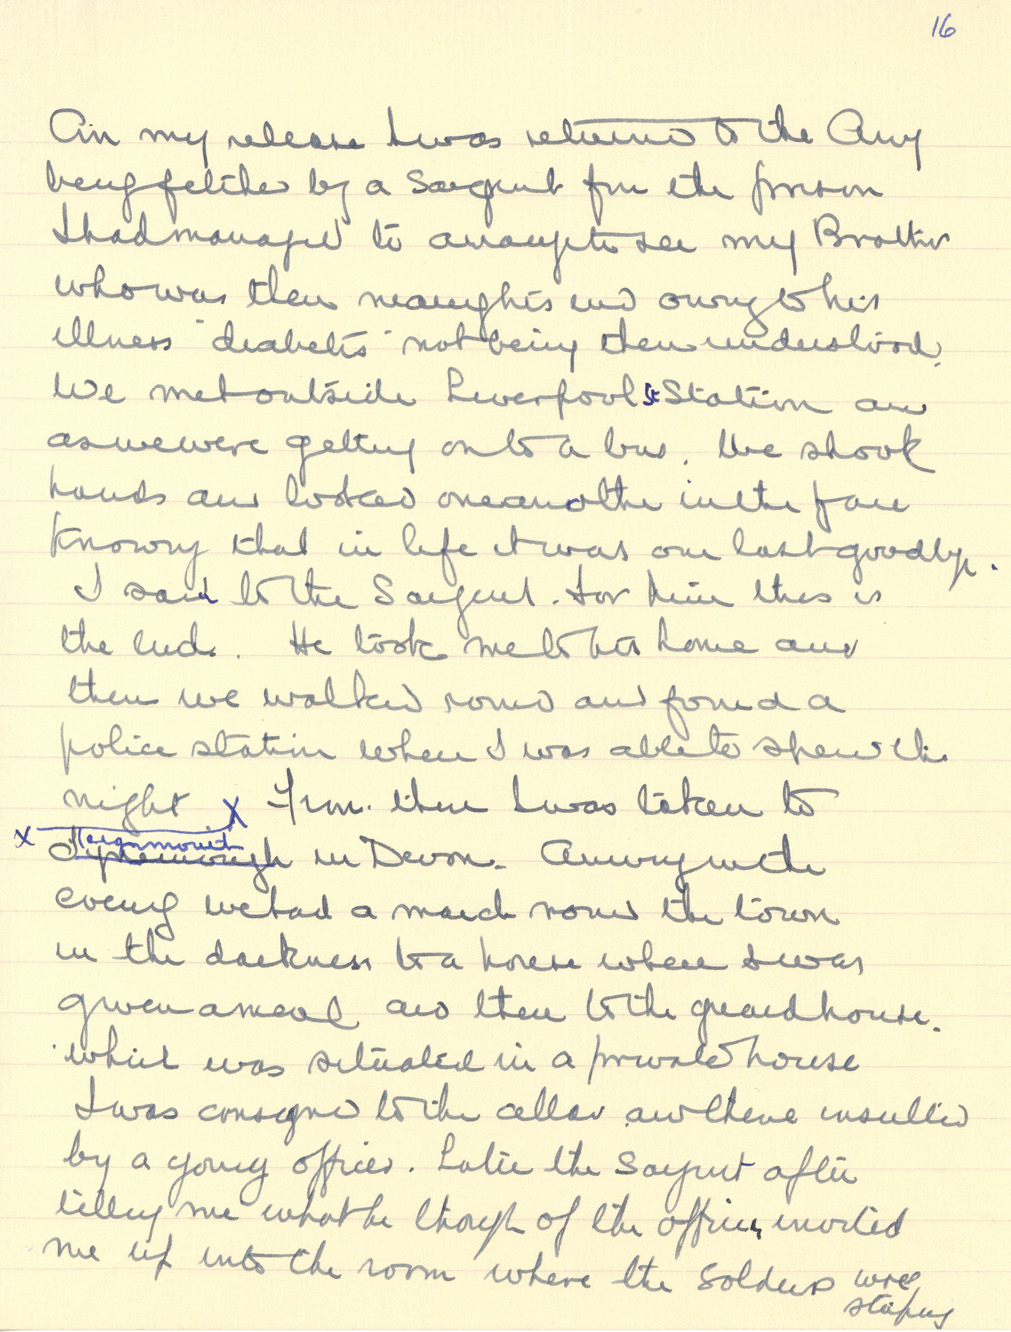 16
On my release I was returned to the Army
being fetched by a Sargent from the prison
I had managed to arrange to see my Brother
who was then nearing his end owing to his
illness "diabetis" not being then understood.
We met outside Liverpool St Station and
as we were getting onto a bus. We shook
hands and looked one another in the face
knowing that in life it was our last goodbye.
I said to the Sargent. For him this is
the end. He took me to his home and
then we walked round and found a
police station where I was able to spend the
night X From there I was taken to
X Teignmouth
in Devon. Arriving in the
evening we had a march round the town
in the darkness to a house where I was
given a meal and then to the guardhouse.
which was situated in a private house
I was consigned to the cellar and there insulted
by a young officer. Later the Sargent after
telling me what he though of the officer, invited
me up into the room where the Soldiers were
staying